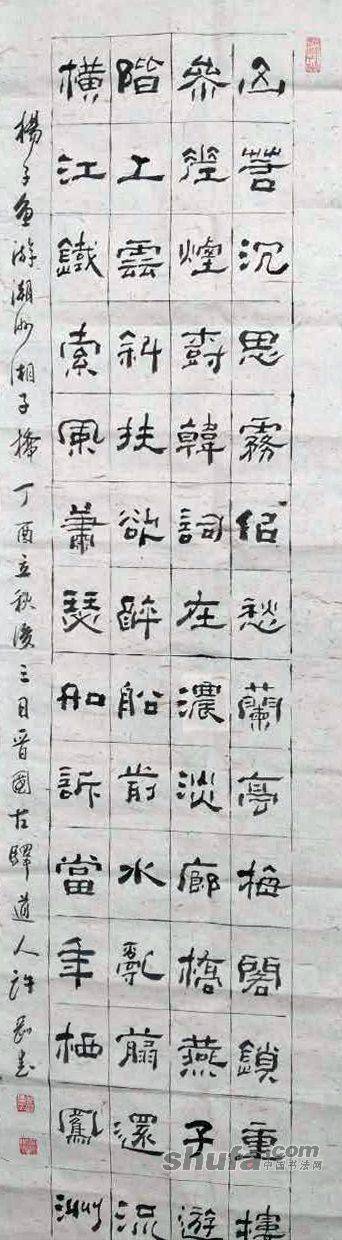 沉思霧愁蘭亭梅閣鎖重樓
徑煙封韓詞在濃淡廊橋燕子遊
階上雲斜扶欲醉船前水亂翦還沉
橫江鐵索風蕭瑟船訴當年栖鷺洲
楊子游潮州湘子橋丁酉立秋後三日晉國古驛道人許書
shufa.com
中国书法网